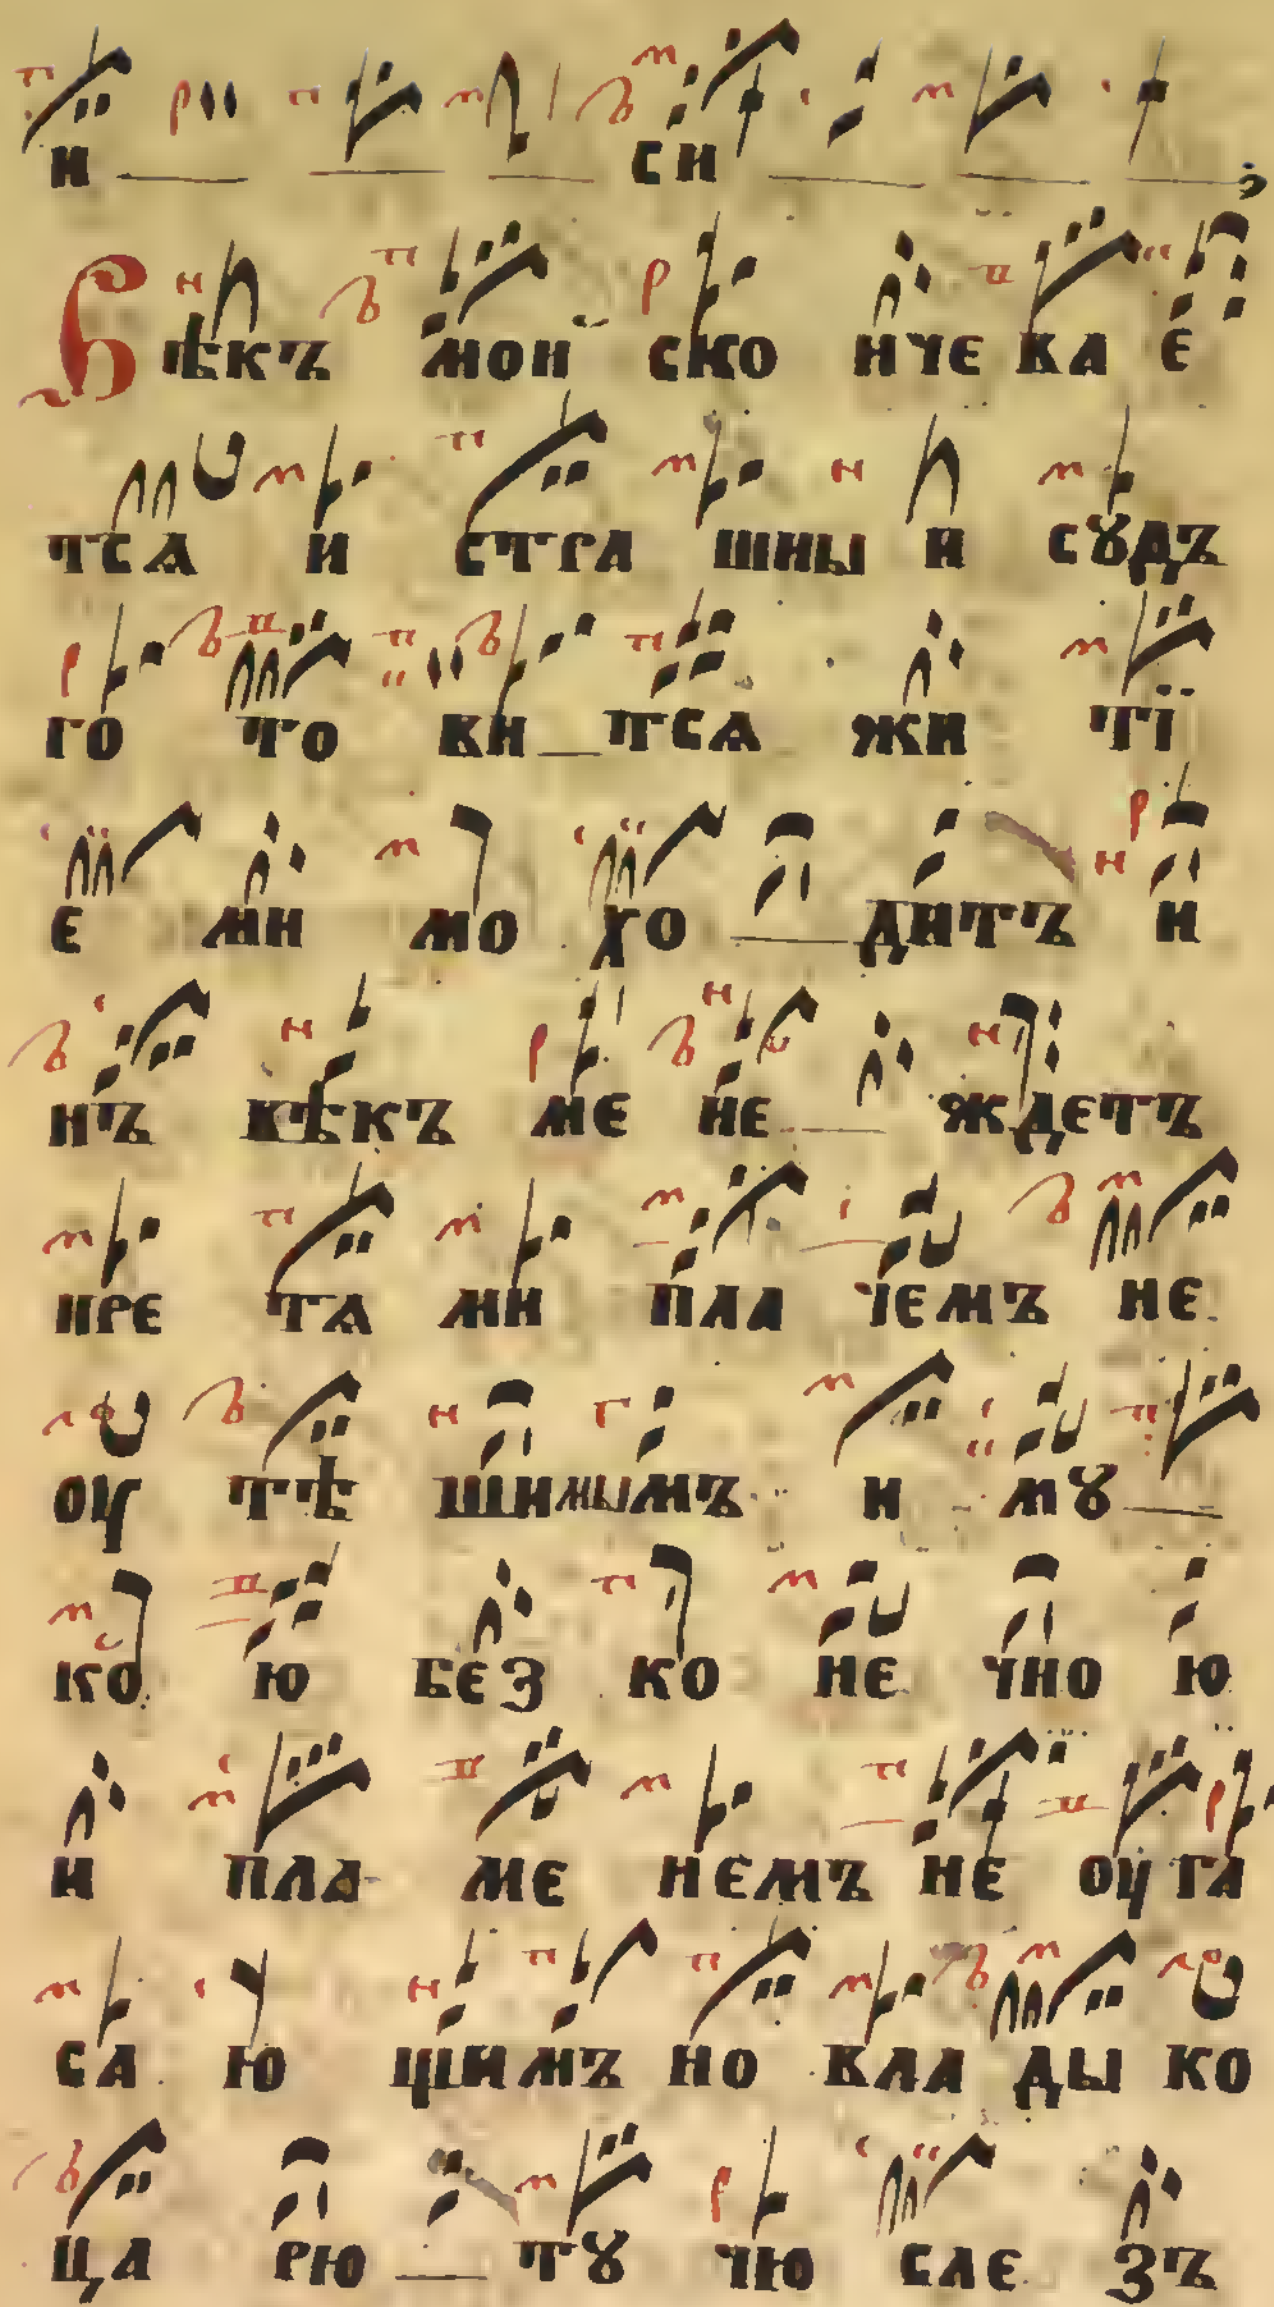 и си
Вѣкъ мой ско нчє ва є
тсѧ и стра шны и сꙋдъ
го то ви тсѧ жи тї
є ми мо хо дитъ и
нъ вѣкъ мє нє ждєтъ
прє тѧ ми пла чємъ нє
оу тѣ шимымъ и мꙋ
ко ю бєз ко нє чно ю
и пла мє нємъ нє оу га
са ю щимъ но вла ды ко
ца рю тꙋ чю слє зъ